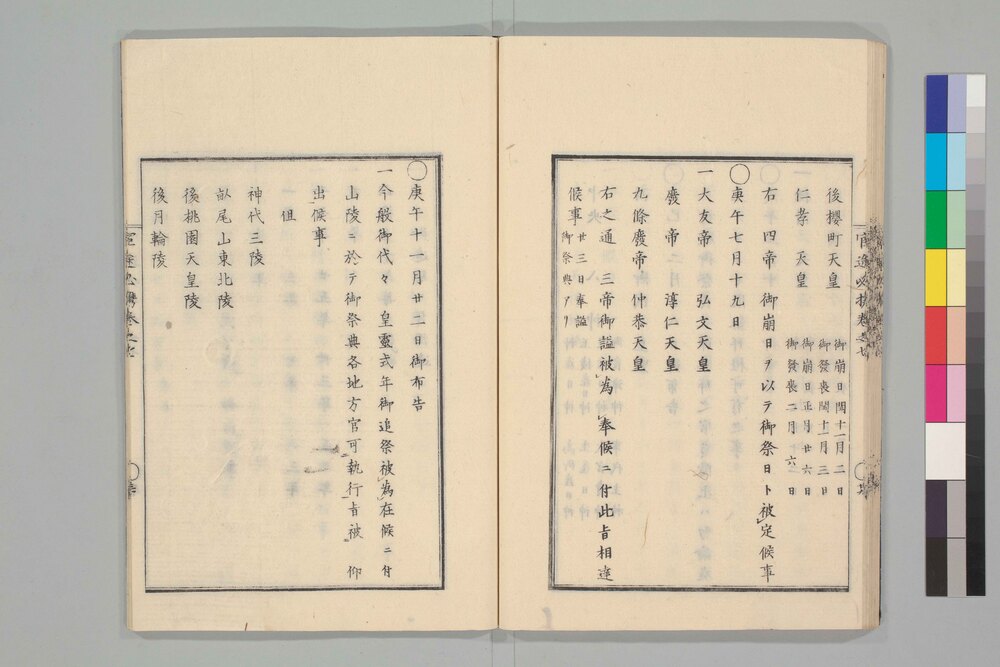 後櫻町天皇 御崩日閏十一月二日
御發喪閏十二月三日
仁孝天皇 御崩日正月廿六日
御發喪二月六日
右四帝 御崩日ヲ以テ御祭日ト被定候事
○庚午七月十九日
一大友帝 弘文天皇
廢帝 淳仁天皇
九條廢帝 仲恭天皇
右之通 三帝御謚被為奉候ニ付此旨相達
候事 廿三日奉謚
御祭典アリ
○庚午十一月廿二日御布告
一今般御代々 皇靈式年御追祭被為在候ニ付
山陵ニ於テ御祭典各地方官可執行旨被 仰
出候事
但
神代三陵
畝尾山東北陵
後桃園天皇陵
後月輪陵